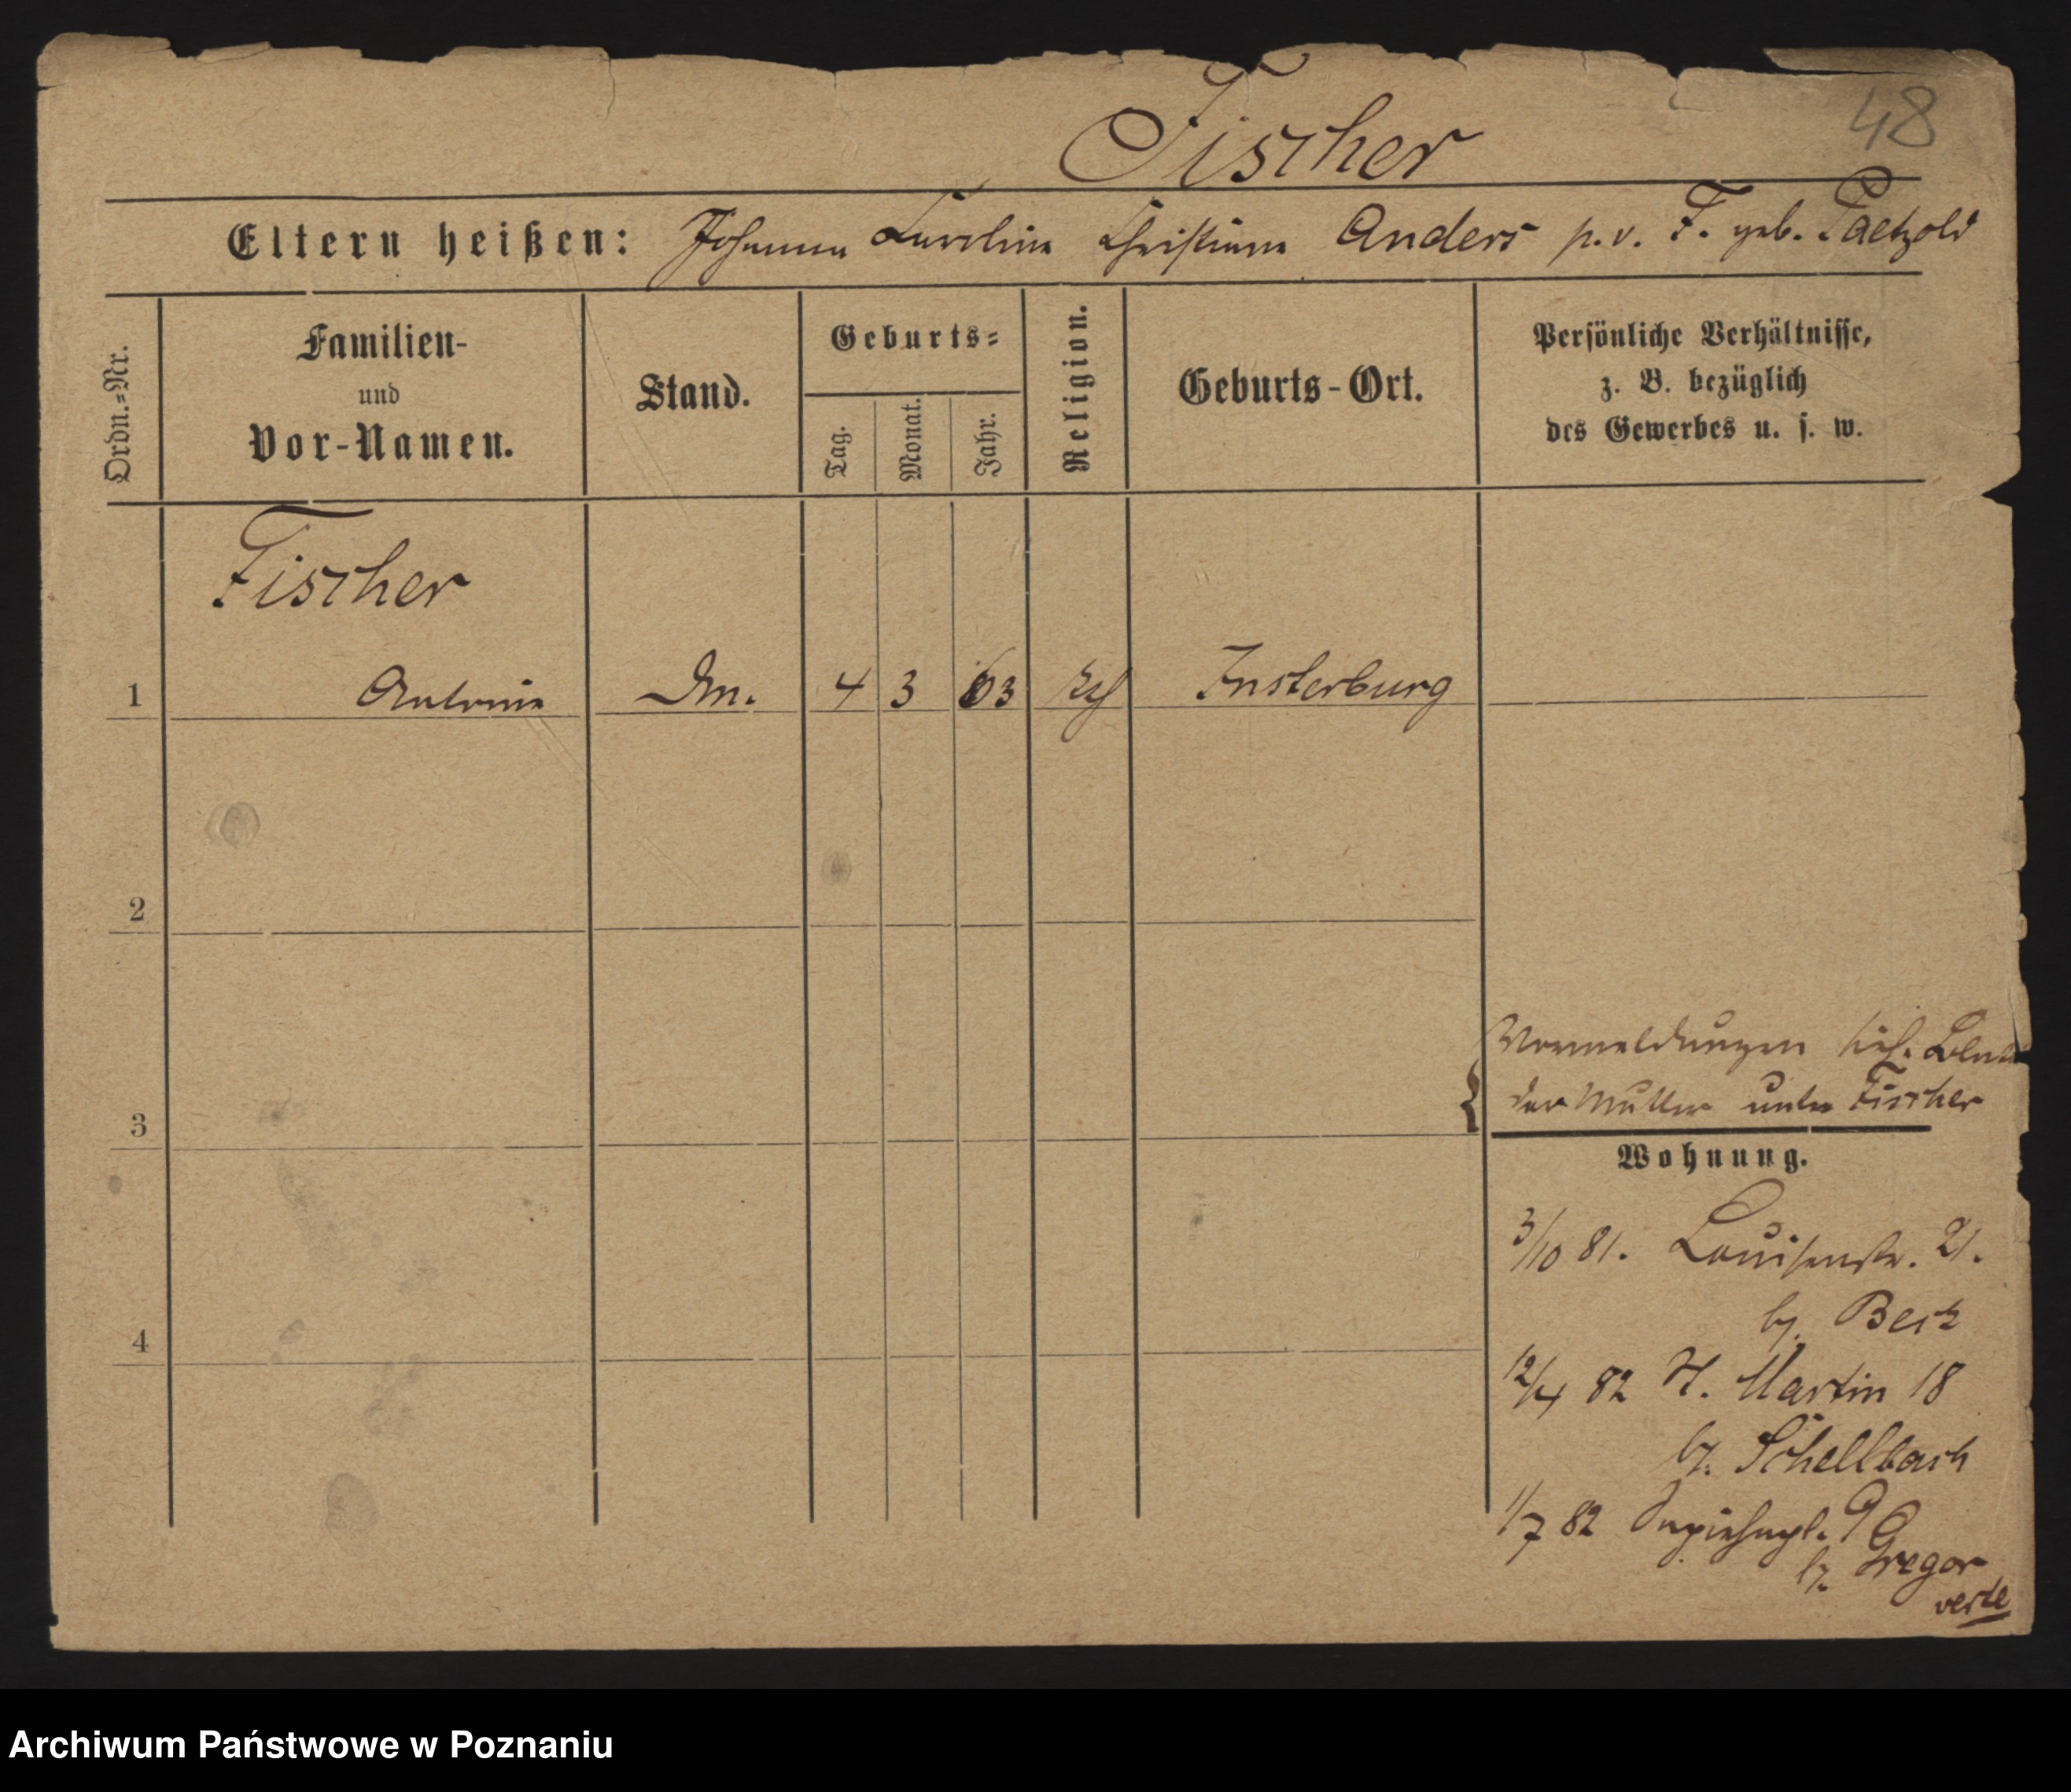 48
Fischer
Eltern heißen: Johanna Caroline Christiane Anders p.v. F. geb. Paetzold
Ordn.=Nr.
Familien-
und
Vor-Namen.
Stand.
Geburts=
Tag.
Monat.
Jahr.
Religion.
Geburts-Ort.
Persönliche Verhältnisse,
z. B. bezüglich
des Gewerbes u. s. w.
Fischer
1 Antonie 4 3 63 Insterburg
2
3
4
Vormeldungen
der Mutter unter Fischer
Wohnung.
3/10 81. Louisenstr. 21.
b/. Beck
12/4 82 St. Martin 18
b/. Schellbach
1/7 82 Sapiehapl. 9
b/. Gregor
verte
Archiwum Państwowe w Poznaniu